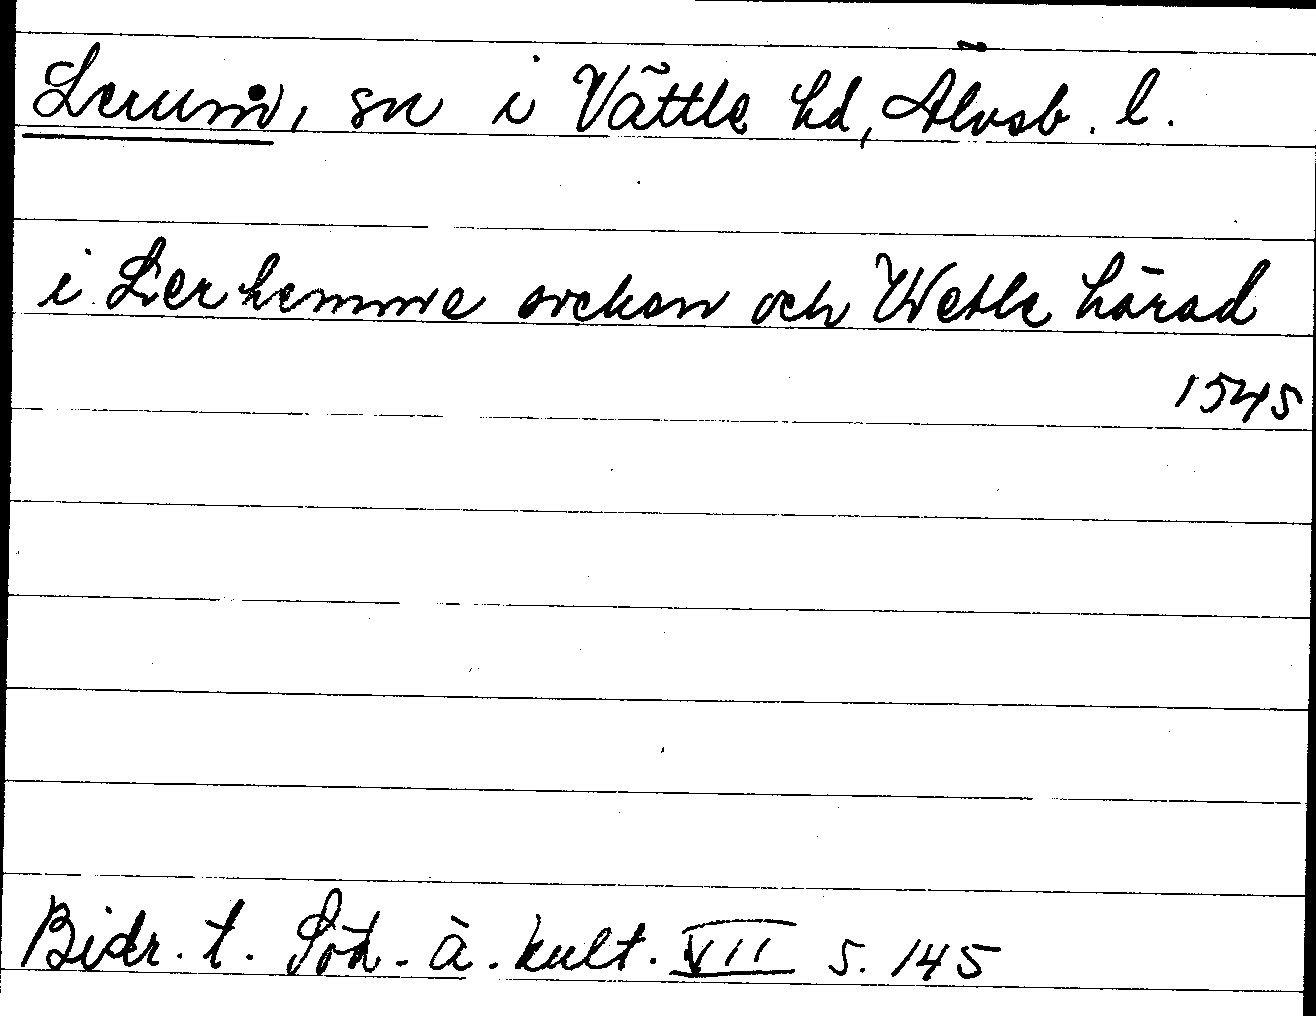 Lerum, sn i Vättle hd, Älvsb. l.
i Lerhemme socken och Wetle härad
1545
Bidr. t. Söd. ä. kult. VII s. 145